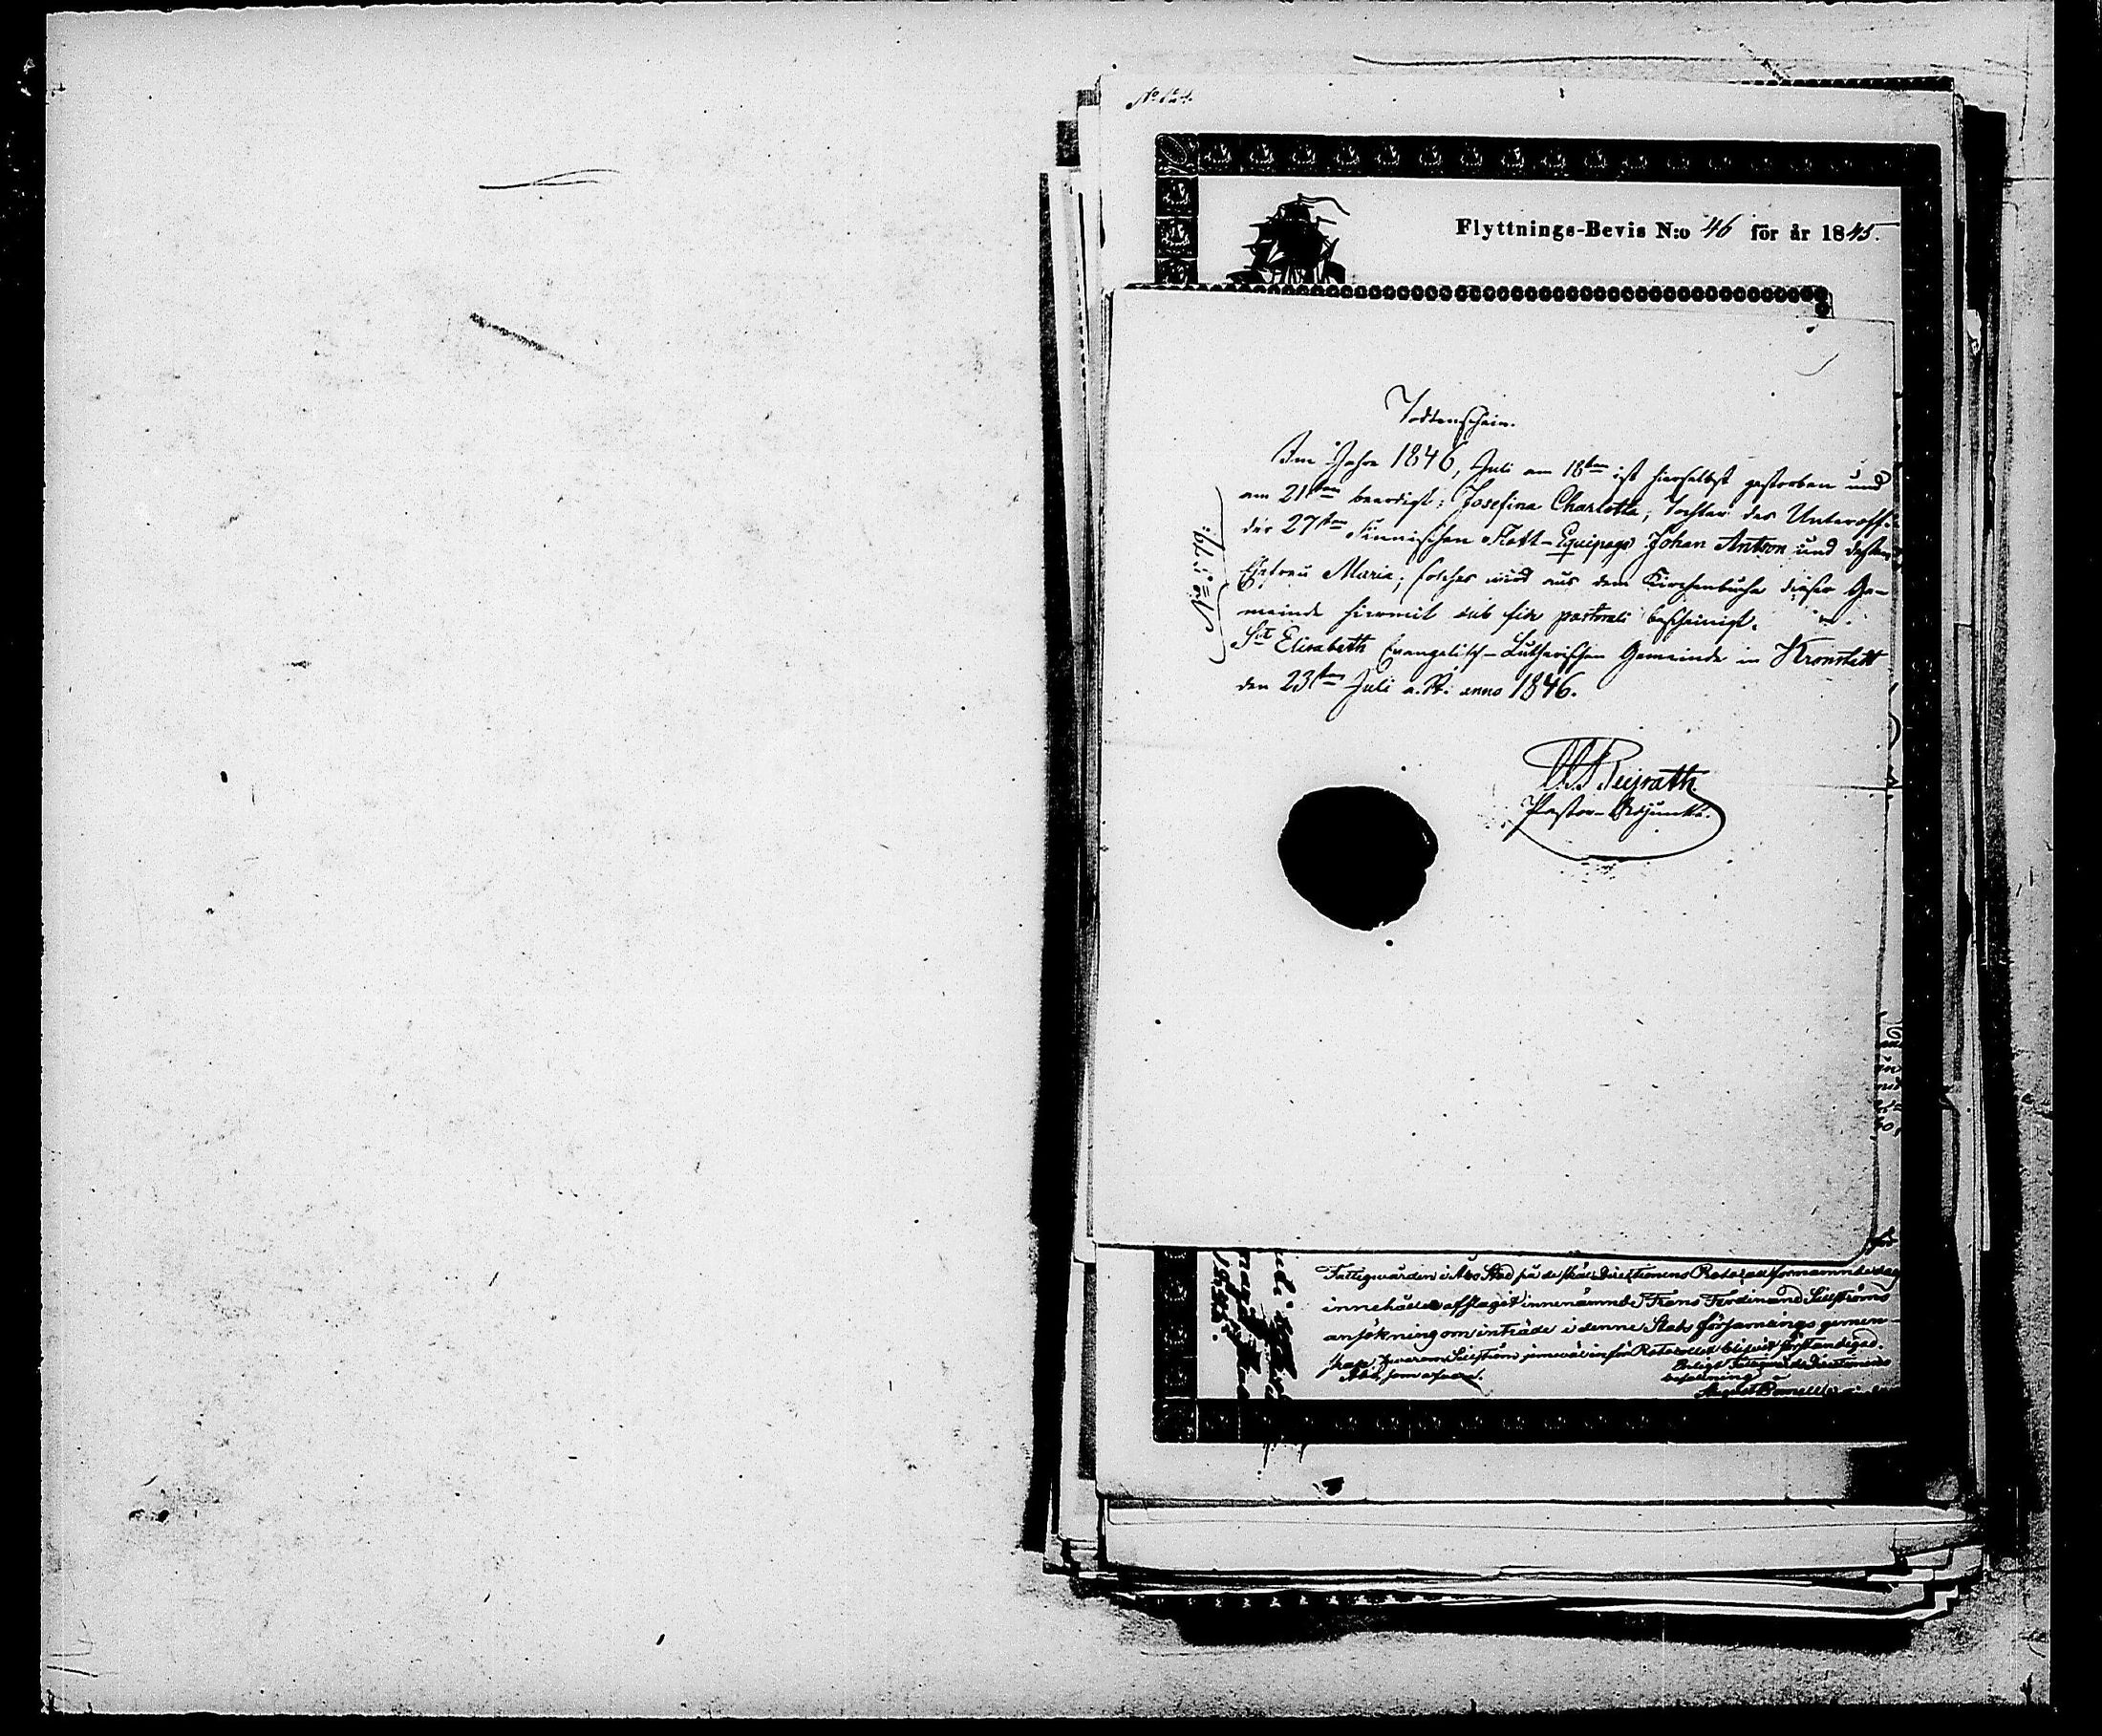 No 124.
Flyttnings-Bevis N:o 46 för år 1845.
Todtenschein.
Im Jahre 1846, Juli am 18ten ist hierselbst gestorben und
am 21ten beerdigt: Josefina Charlotta, Tochter des Unteroff:
der 27ten Finnischen Flott-Equipage Johan Antson und dessen
Ehefrau Maria; solches wird aus dem Kirchenbuche dieser Ge-
meinde hiermit sub fide pastorali bescheinigt.
St Elisabeth Evangelisch-Lutherischen Gemeinde in Kronstatt
den 23ten Juli a. St: anno 1846.
No 579.
Pastor-Adjunkt.
Fattigvården i Åbo Stad på de skäl Direktionens Protocoll
innehåller afslagit innenämnde Frans Ferdinand Sellströms
ansökning om inträde i denne Stads församlings gemen-
skap,
Åbo, som ofvan.
Enligt
befallning
August